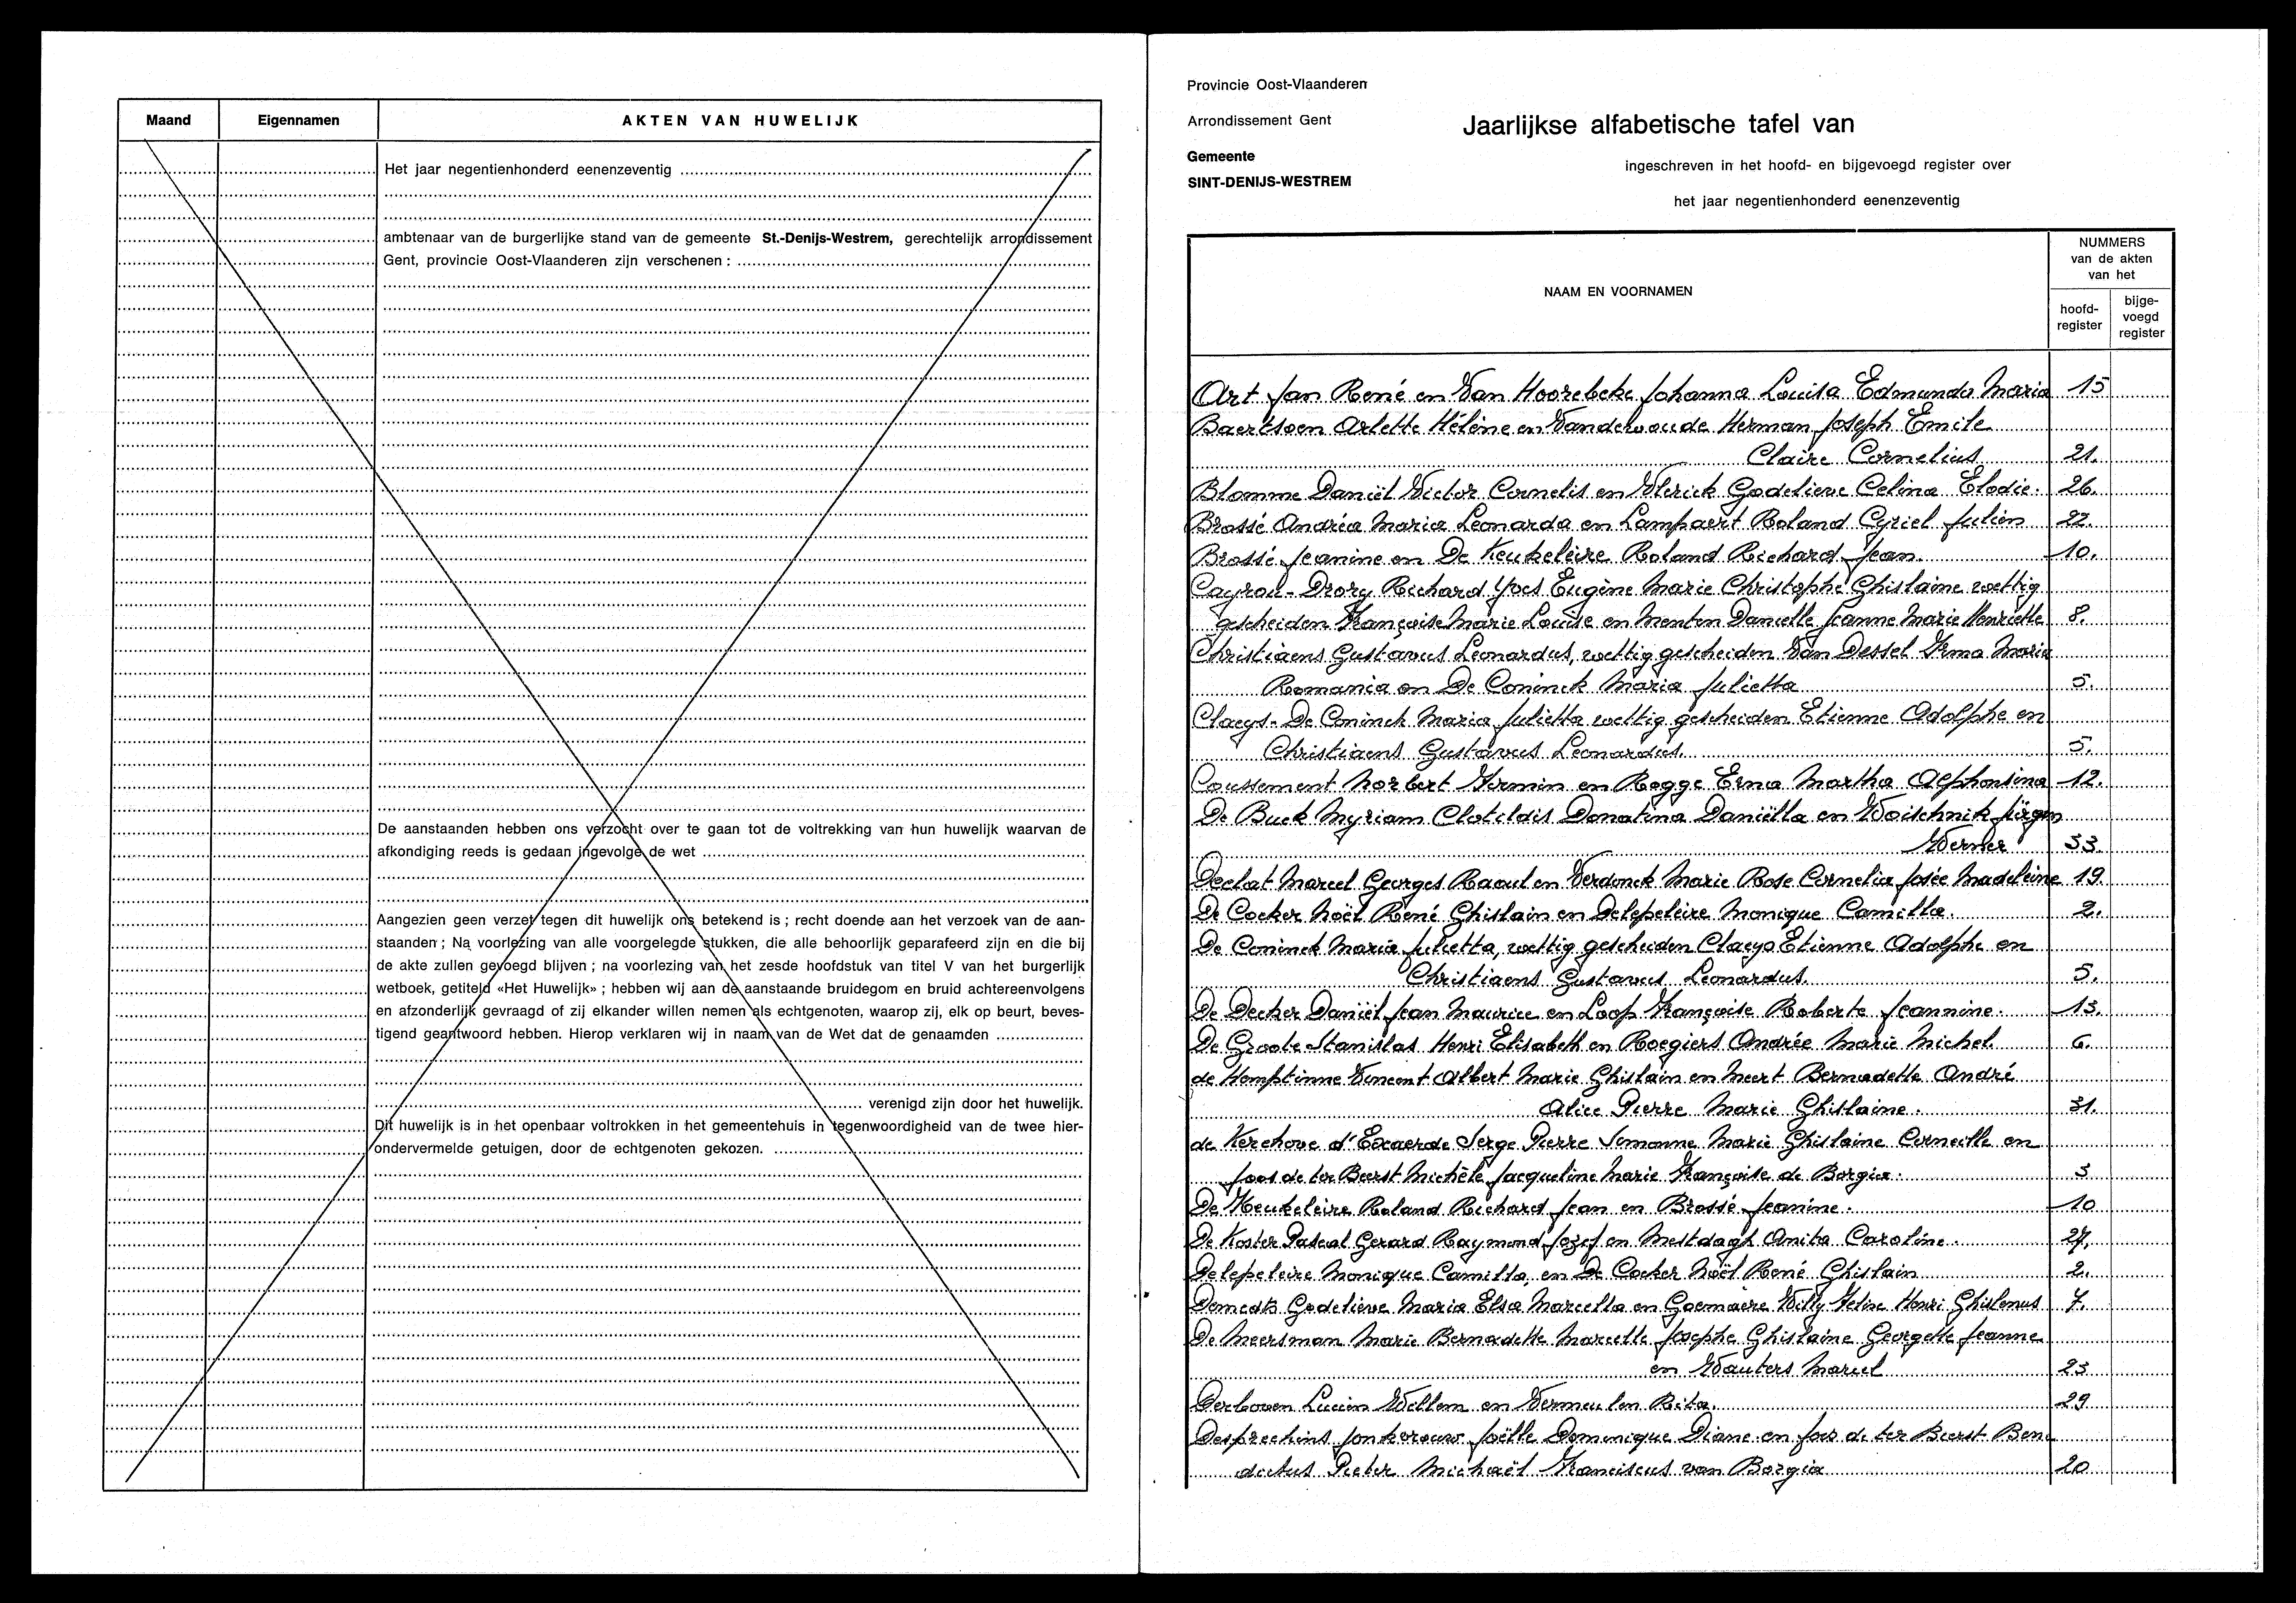 Maand Eigennamen AKTEN VAN HUWELIJK
Het jaar negentienhonderd eenenzeventig
ambtenaar van de burgerlijke stand van de gemeente St.-Denijs-Westrem, gerechtelijk arrondissement
Gent, provincie Oost-Vlaanderen zijn verschenen :
De aanstaanden hebben ons verzocht over te gaan tot de voltrekking van hun huwelijk waarvan de
afkondiging reeds is gedaan ingevolge de wet
Aangezien geen verzet tegen dit huwelijk ons betekend is ; recht doende aan het verzoek van de aan-
staanden ; Na voorlezing van alle voorgelegde stukken, die alle behoorlijk geparafeerd zijn en die bij
de akte zullen gevoegd blijven ; na voorlezing van het zesde hoofdstuk van titel V van het burgerlijk
wetboek, getiteld «Het Huwelijk» ; hebben wij aan de aanstaande bruidegom en bruid achtereenvolgens
en afzonderlijk gevraagd of zij elkander willen nemen als echtgenoten, waarop zij, elk op beurt, beves-
tigend geantwoord hebben. Hierop verklaren wij in naam van de Wet dat de genaamden
verenigd zijn door het huwelijk.
Dit huwelijk is in het openbaar voltrokken in het gemeentehuis in tegenwoordigheid van de twee hier-
ondervermelde getuigen, door de echtgenoten gekozen.
Provincie Oost-Vlaanderen
Arrondissement Gent
Gemeente
SINT-DENIJS-WESTREM
Jaarlijkse alfabetische tafel van
ingeschreven in het hoofd- en bijgevoegd register over
het jaar negentienhonderd eenenzeventig
NAAM EN VOORNAMEN
NUMMERS
van de akten
van het
hoofd-
register
bijge-
voegd
register
Art Jan René en Van Hoorebeke Johanna Louisa Edmunda Maria 15
Baertsoen Arlette Hélène en Vanderwoude Herman Joseph Emile
Claire Cornelius 21.
Blomme Daniël Victor Cornelis en Vlerick Godelieve Celina Elodie. 26.
Brossé Andréa Maria Leonarda en Lampaert Roland Cyriel Julien 22.
Brossé Jeanine en De Keukeleire Roland Richard Jean. 10.
Cayron-Drory Richard Yves Eugène Marie Christophe Ghislaine wettig
gescheiden Françoise Marie Louise en Menten Danielle Jeanne Marie Henriette 8.
Christiaens Gustavus Leonardus, wettig gescheiden Van Dessel Irma Maria
Romania en De Coninck Maria Julietta 5.
Claeys-De Coninck Maria Julietta wettig gescheiden Etienne Adolphe en
Christiaens Gustavus Leonardus. 5.
Coussement Norbert Firmin en Rogge Erna Martha Alphonsina 12.
De Buck Myriam Clotildis Donatina Daniëlla en Woischnik Jürgen
Werner 33.
Declat Marcel Georges Raoul en Verdonck Marie Rose Cornelia Josée Madeleine 19.
De Cocker Noël René Ghislain en Delepeleire Monique Camilla. 2.
De Coninck Maria Julietta, wettig gescheiden Claeys Etienne Adolphe en
Christiaens Gustavus Leonardus. 5.
De Decker Daniël Jean Maurice en Loop Françoise Roberte Jeannine. 13.
De Groote Stanislas Henri Elisabeth en Roegiers Andrée Marie Michel. 6.
de Hemptinne Vincent Albert Marie Ghislain en Meert Bernadette André
Alice Pierre Marie Ghislaine. 31.
de Kerchove d'Exaerde Serge Pierre Simonne Marie Ghislaine Corneille en
Joos de ter Beerst Michèle Jacqueline Marie Françoise de Borgia. 3
De Keukeleire Roland Richard Jean en Brossé Jeanine. 10
De Koster Pascal Gerard Raymond Jozef en Mestdagh Anita Caroline. 27.
Delepeleire Monique Camilla, en De Cocker Noël René Ghislain 2.
Demedts Godelieve Maria Elsa Marcella en Goemaere Willy Henri Ghislenus 7.
De Meersman Marie Bernadette Marcelle Josephe Ghislaine Georgette Jeanne
en Wauters Marcel 23
Derboven Lucien Willem en Vermeulen Rita. 29
Desprechins Jonkvrouw Joëlle Dominique Diane en Joos de ter Beerst Bene
dictus Pieter Michaël Franciscus van Borgia 20